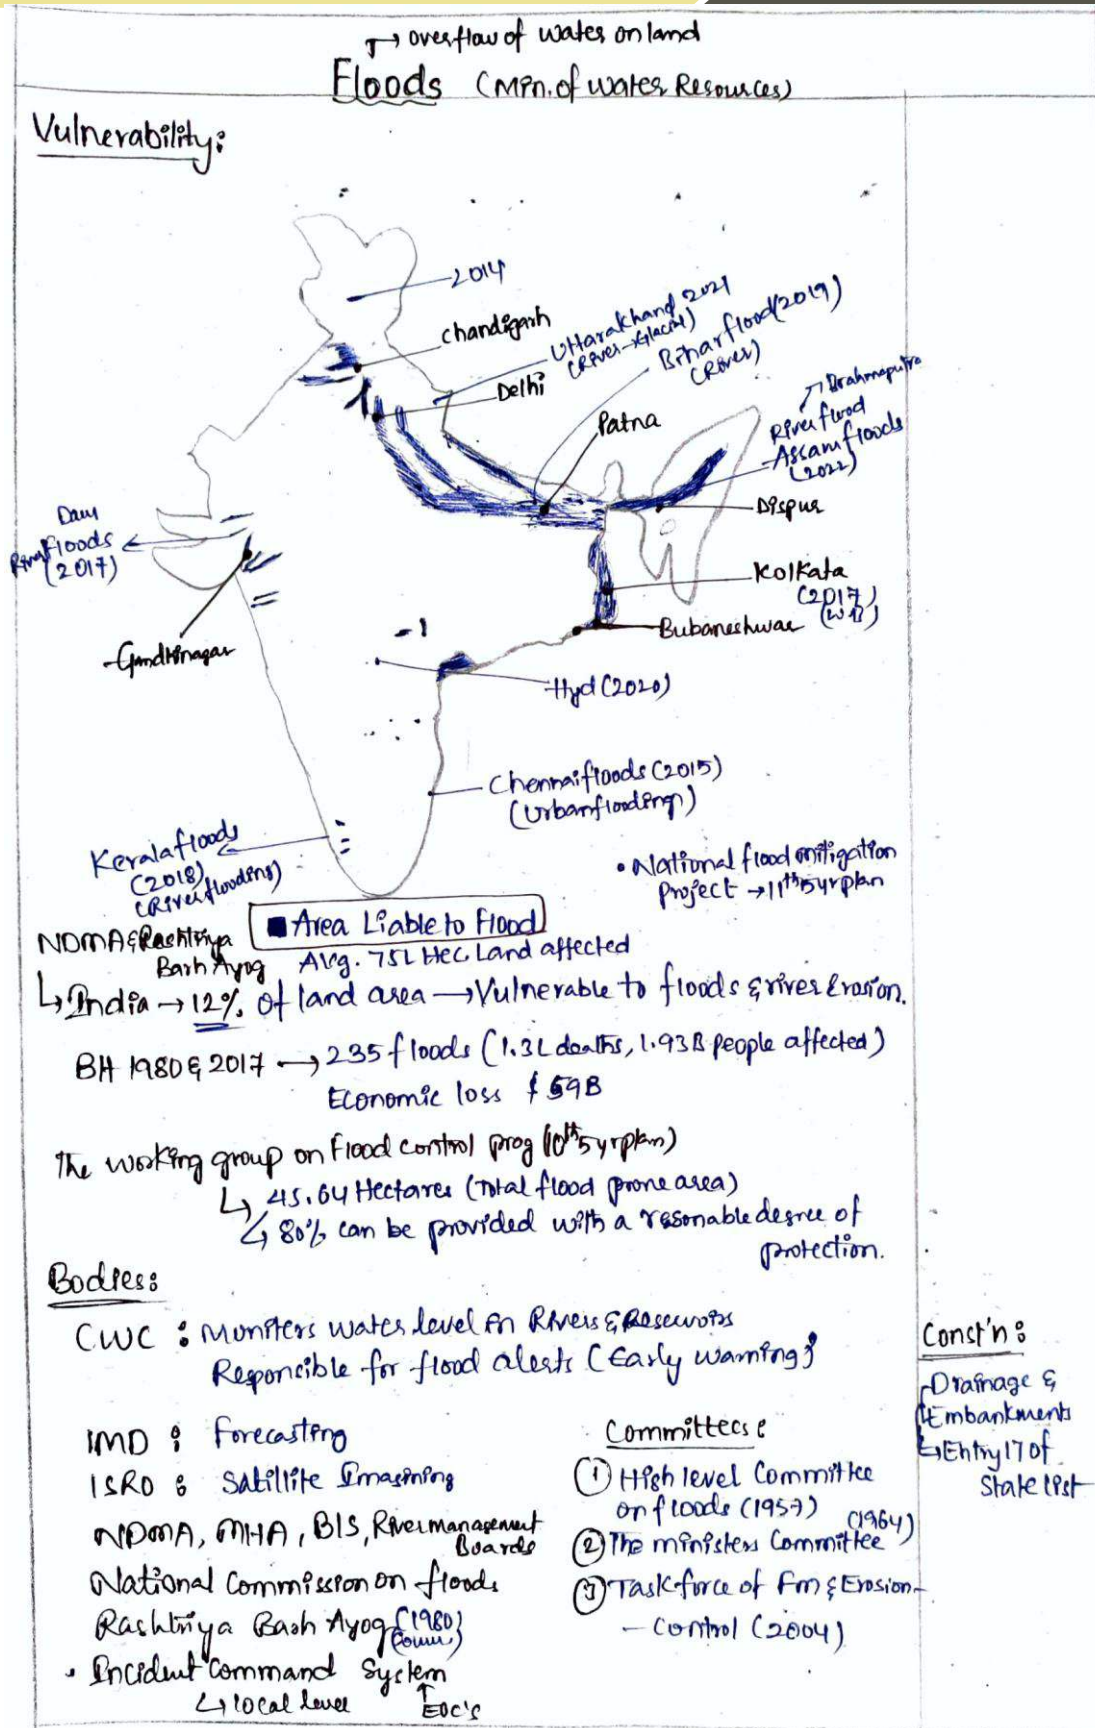 → overflow of water on land
Floods (Min. of water Resources)
Vulnerability:
2014
chandigarh
Uttarakhand 2021
(River→Glacial)
Bihar flood (2019)
(River)
Delhi
Patna
→ Brahmaputra
River flood
Assam floods
(2022)
Dispur
Dam
River floods
(2017)
Kolkata
(2017)
(WB)
Bubaneshwar
Gandhinagar
Hyd (2020)
Chennai floods (2015)
(Urban flooding)
Kerala floods
(2018)
(River flooding)
• National flood mitigation
Project → 11th 5 yr plan
■ Area Liable to Flood
NDMA & Rashtriya
Barh Ayog
Avg. 75L Hec Land affected
↳ India → 12% of land area → Vulnerable to floods & river Erosion.
BH 1980 & 2017 → 235 floods (1.3L deaths, 1.93B people affected)
Economic loss $ 59B
The working group on Flood control prog (10th 5 yr plan)
↳ 45.64 Hectares (Total flood prone area)
↳ 80% can be provided with a resonable degree of
protection.
Bodies:
CWC : Moniters water level in Rivers & Reservoirs
Responsible for flood alerts (Early warning)
IMD : Forecasting
ISRO : Satillite Imagining
NDMA, MHA, BIS, River management
Boards
National Commission on floods
Rashtriya Barh Ayog (1980)
• Incident Command System
↳ local level
↑ EOC's
Committees :
① High level Committee
on floods (1957)
② The ministers Committee (1964)
③ Task force of Fm & Erosion
- control (2004)
Const'n :
Drainage &
Embankments
↳ Entry 17 of
State list